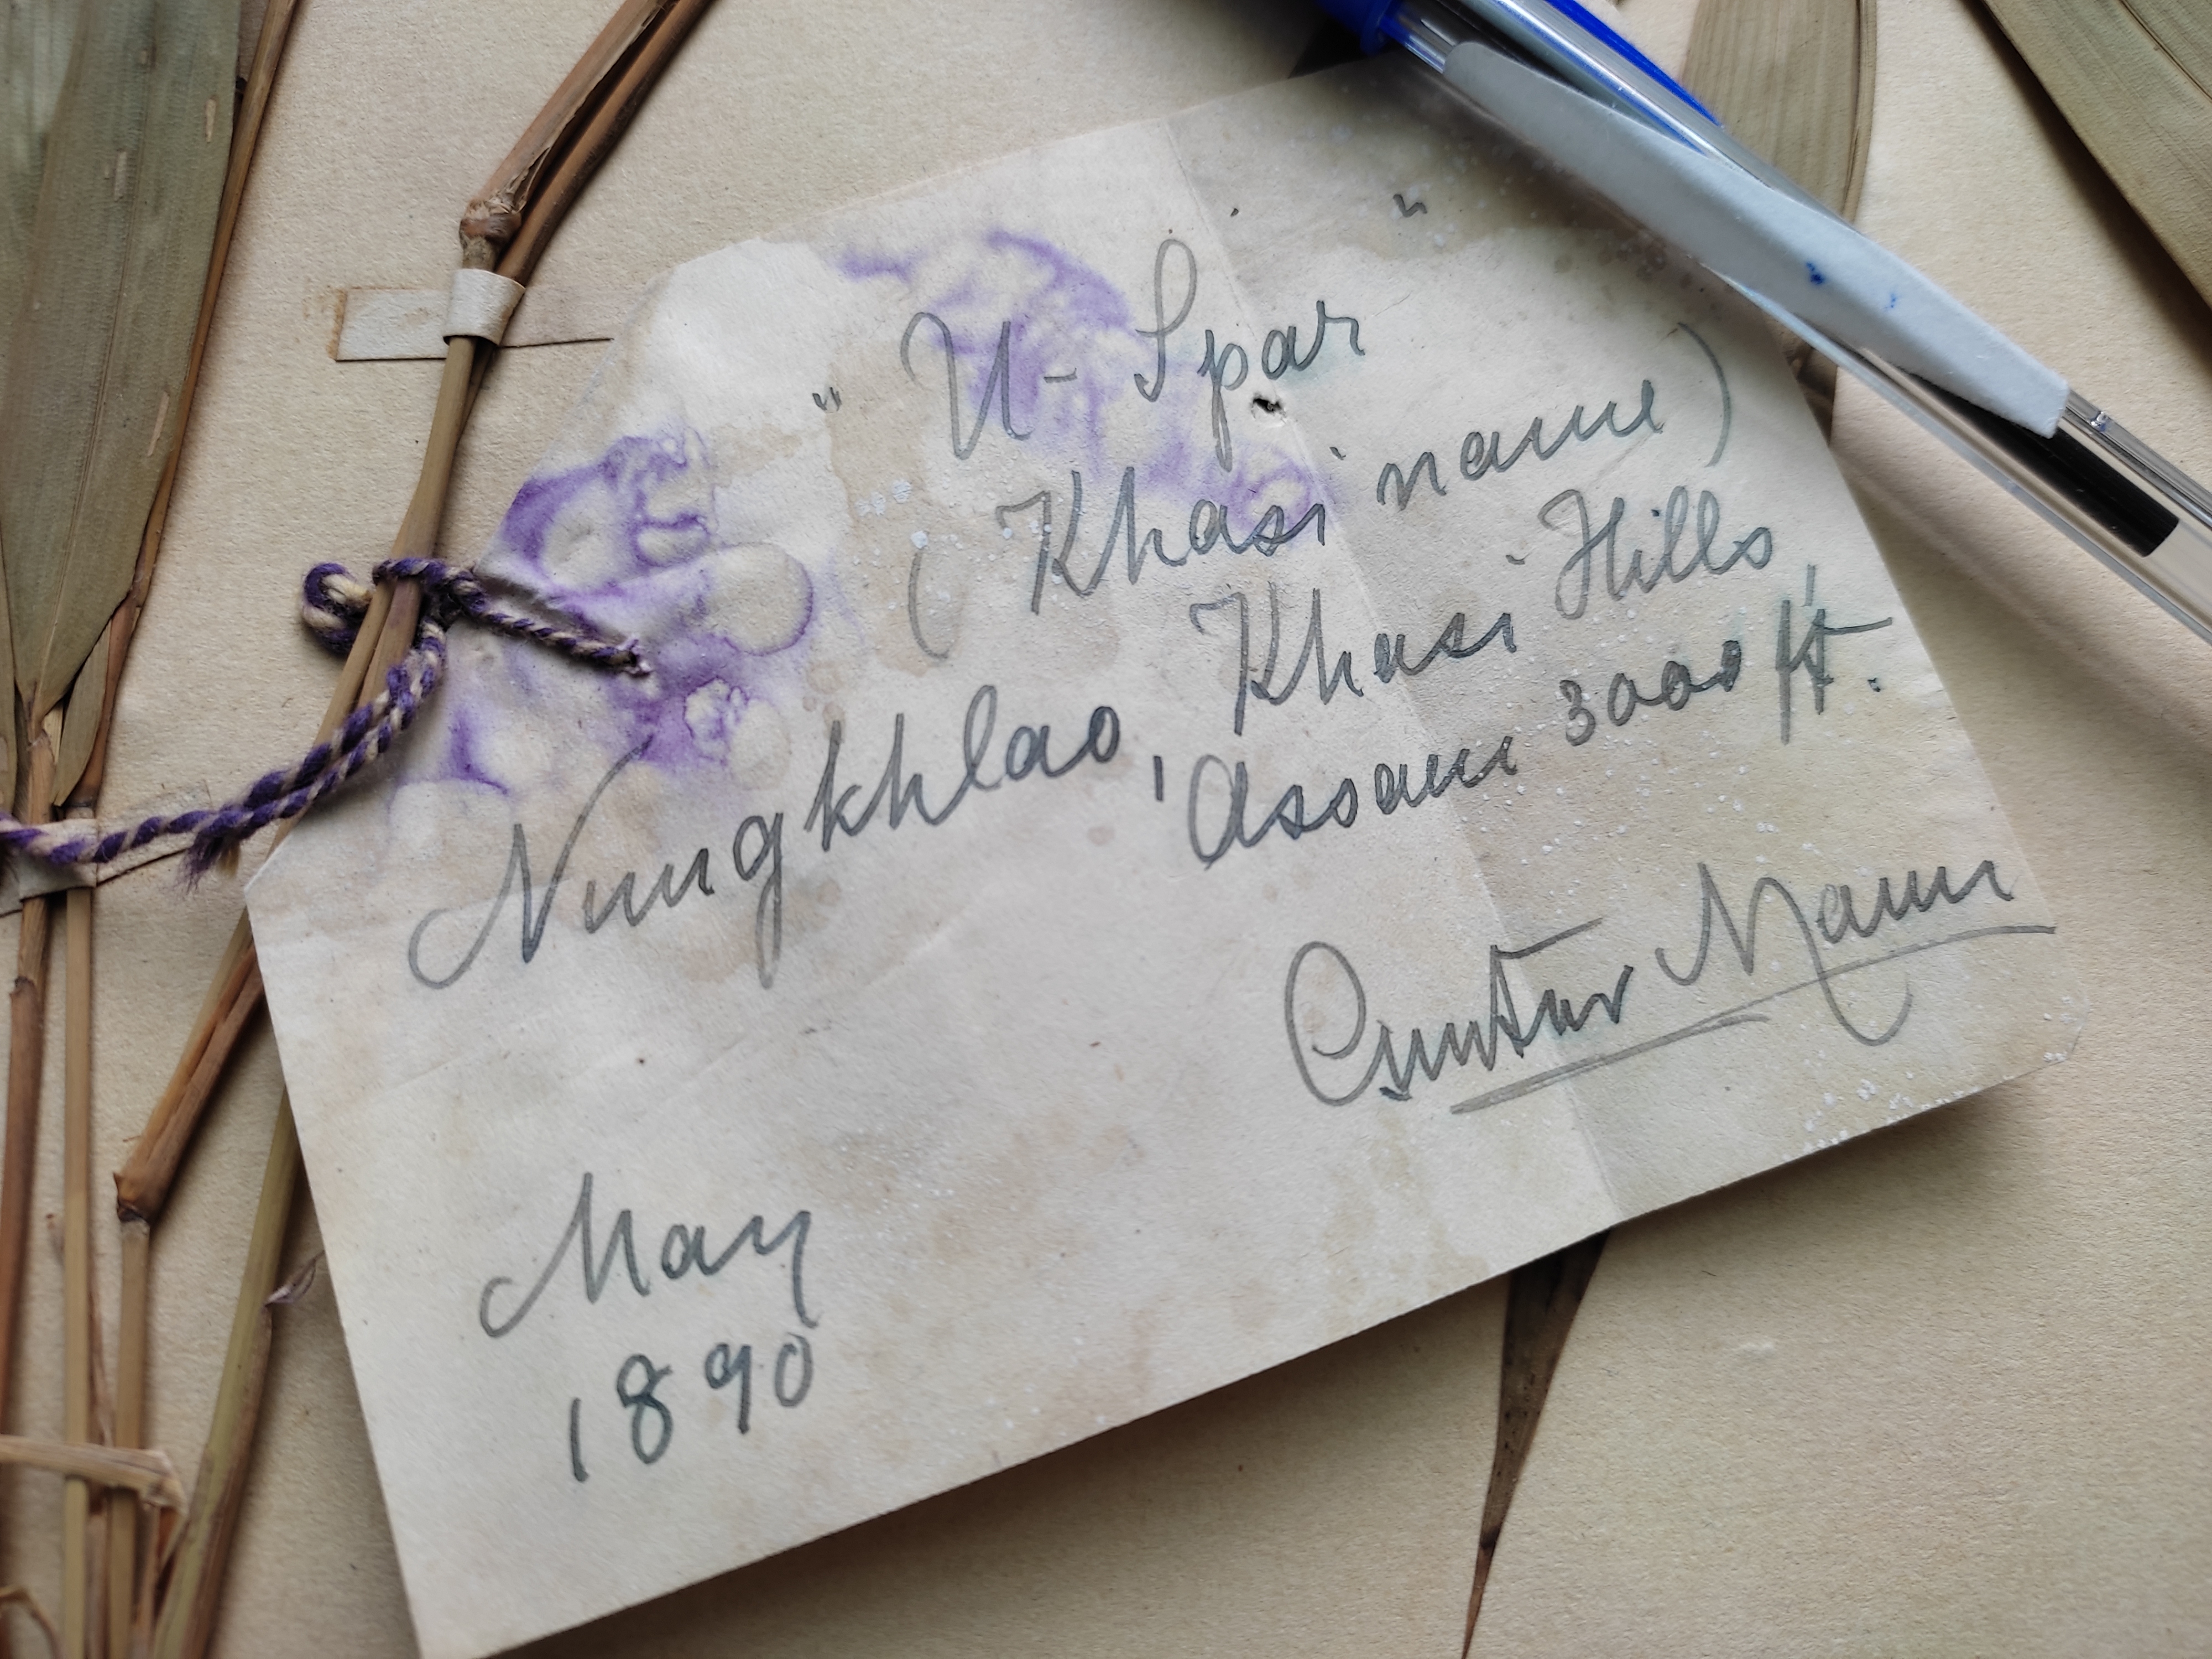 "U-Spar"
(Khasi name)
Nungkhlao, Khasi Hills,
Assam 3000 ft.
Gustav Mann
May
1890